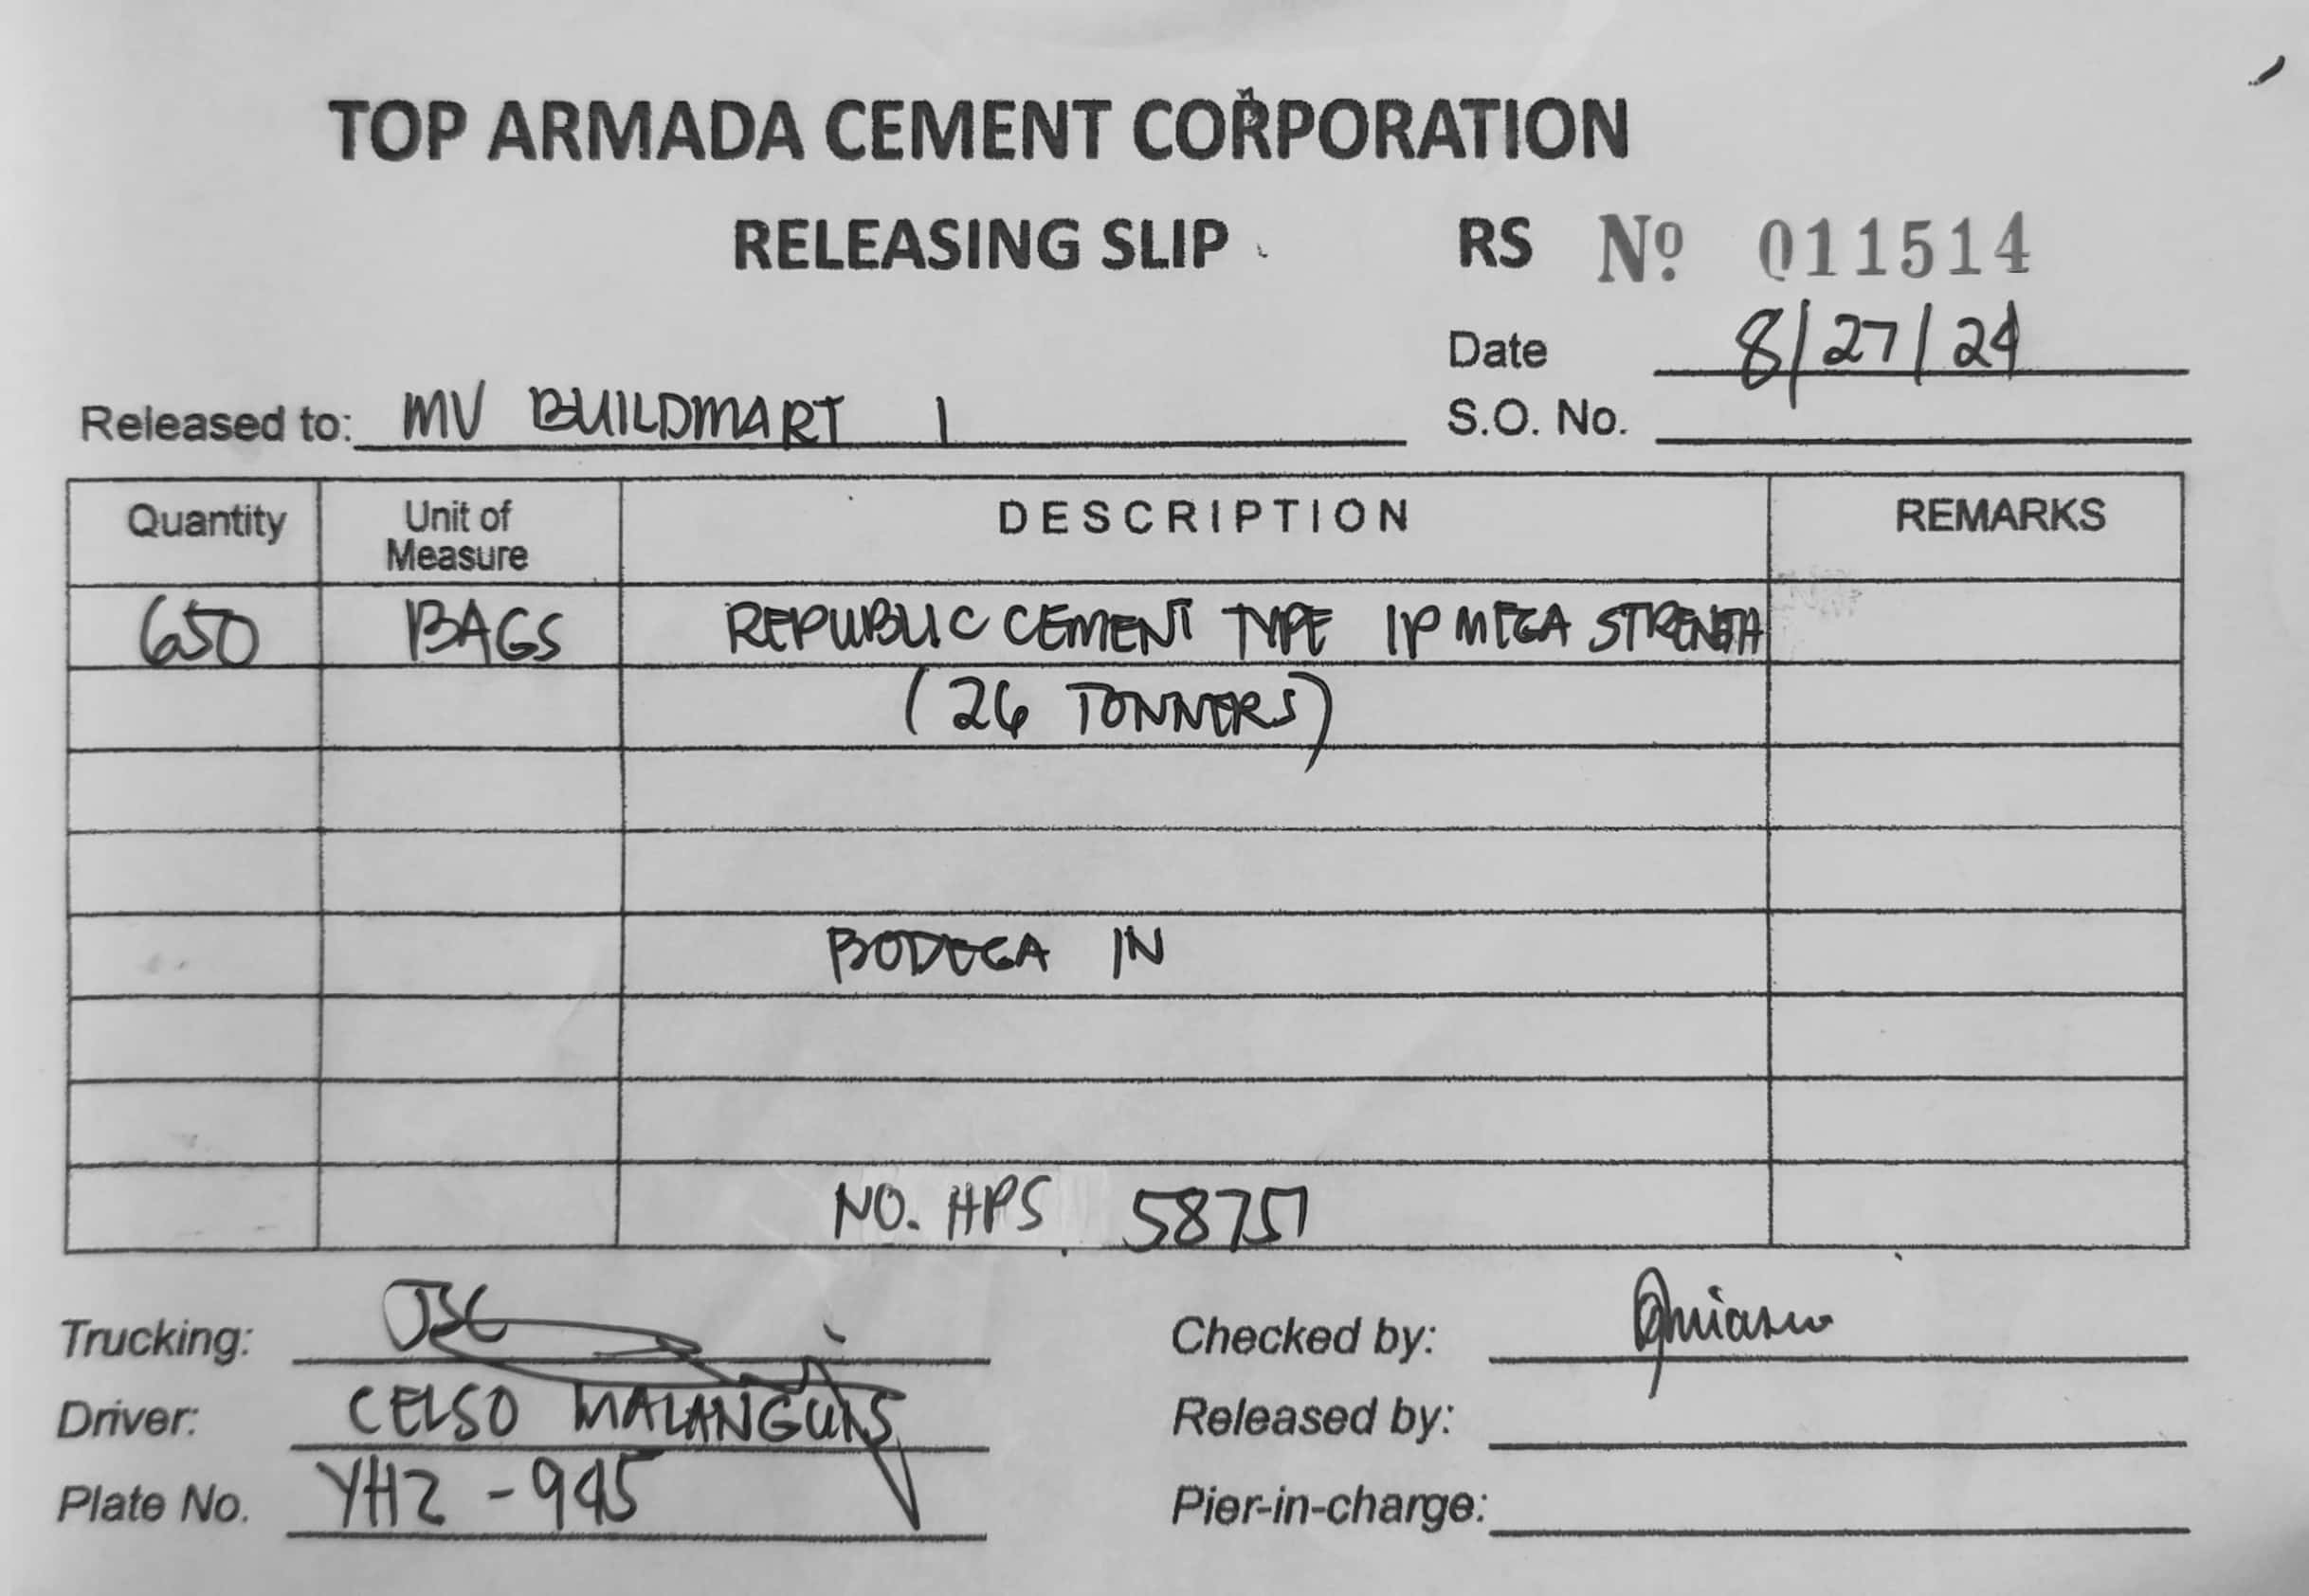 TOP ARMADA CEMENT CORPORATION
RELEASING SLIP RS Nº 011514
Date 8/27/24
Released to: MV BUILDMART 1 S.O. No.
Quantity Unit of Measure DESCRIPTION REMARKS
650 BAGS REPUBLIC CEMENT TYPE 1P MEGA STRENGTH
(26 TONNERS)
BODEGA IN
NO. HPS 58751
Trucking: JSC Checked by:
Driver: CELSO MALANGUIS Released by:
Plate No. YHZ-945 Pier-in-charge: